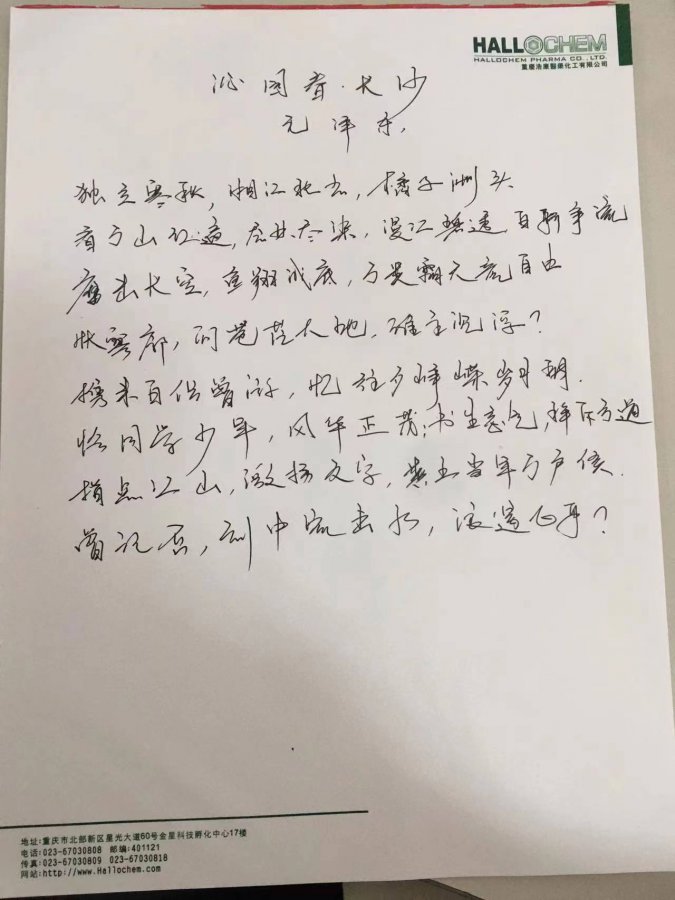 HALLOCHEM
HALLOCHEM PHARMA CO., LTD.
重慶浩康醫藥化工有限公司
沁园春·长沙
毛泽东.
独立寒秋,湘江北去,橘子洲头
看万山红遍,层林尽染,漫江碧透,百舸争流
鹰击长空,鱼翔浅底,万类霜天竞自由
怅寥廓,问苍茫大地,谁主沉浮?
携来百侣曾游,忆往夕峥嵘岁月稠.
恰同学少年,风华正茂;书生意气,挥斥方遒
指点江山,激扬文字,粪土当年万户侯.
曾记否,到中流击水,浪遏飞舟?
地址:重庆市北部新区星光大道60号金星科技孵化中心17楼
电话:023-67030808 邮编:401121
传真:023-67030809 023-67030818
网站:http://www.Hallochem.com